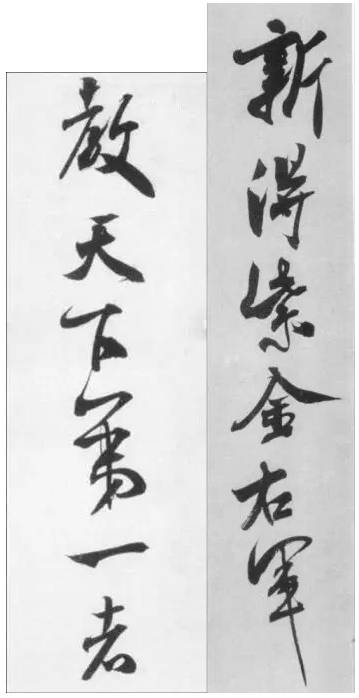 新得紫金右軍
教天下第一者